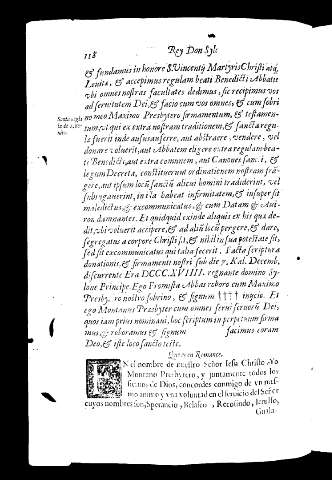 118 Rey Don Sylo
& fundamus in honore S. Vincentij Martyris Christi atq;
Leuita, & accepimus regulam beati Benedicti Abbatis
vbi omnes nostras facultates dedimus, sic recipimus vos
ad seruitutem Dei, & facio cum vos omnes, & cum sobri
no meo Maximo Presbytero firmamentum, & testamen-
tum, vt qui ex extra nostram traditionem, & sancta regu
la fuerit inde ausus auferre, aut abstraere, vendere, vel
donare voluerit, aut Abbatem eligere extra regulam bea-
ti Benedicti, aut extra comunem, aut Canones sancti, &
legum Decreta, constituerunt ordinationem nostram fran
gere, aut ipsum locū sanctū alicui homini tradiderint, vel
subiugauerint, in ista habeat infirmitatem, & insuper sit
maledictus, & excommunicatus, & cum Datam & Aui-
ron damnantes. Et quidquid exinde aliquis ex his que de-
dit, vbi voluerit accipere, & ad aliū locū pergere, & dare,
segregatus a corpore Christi sit, & nihil in sua potestate sit,
sed sit excommunicatus qui talia fecerit. Facta scriptura
donationis, & firmamenti nostri sub die 7. Kal. Decemb.
discurrente Era DCCC.XVIIII. regnante domino Sy-
lone Principe. Ego Fromista Abbas roboro cum Maximo
Presbytero nostro sobrino, & signum inijcio. Et
ego Montanus Presbyter cum omnes serui seruorū Dei,
quos iam prius nominaui, hoc scriptum in perpetuum firma
mus, & roboramus & signum facimus coram
Deo, & iste loco sancto teste.
Quiere en Romance.
EN el nombre de nuestro Señor Iesu Christo Yo
Montano Presbytero, y juntamente todos los
sieruos de Dios, concordes conmigo de vn mis-
mo animo y vna voluntad en el seruicio del Señor
cuyos nombres son, Sperancio, Belasco, Recosindo,